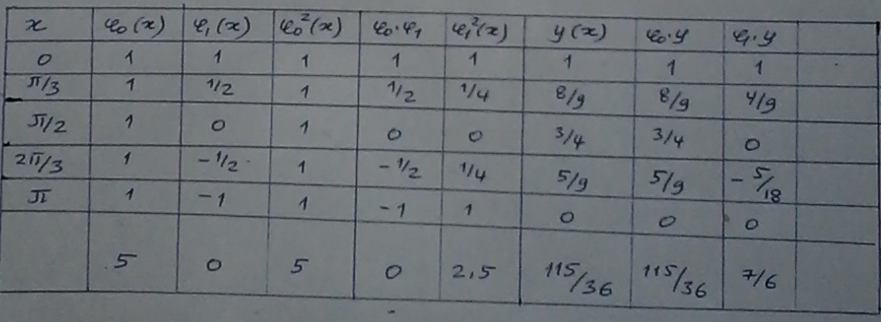 x φ₀(x) φ₁(x) φ₀²(x) φ₀·φ₁ φ₁²(x) y(x) φ₀·y φ₁·y
0 1 1 1 1 1 1 1 1
π/3 1 1/2 1 1/2 1/4 8/9 8/9 4/9
π/2 1 0 1 0 0 3/4 3/4 0
2π/3 1 -1/2 1 -1/2 1/4 5/9 5/9 -5/18
π 1 -1 1 -1 1 0 0 0
5 0 5 0 2,5 115/36 115/36 7/6